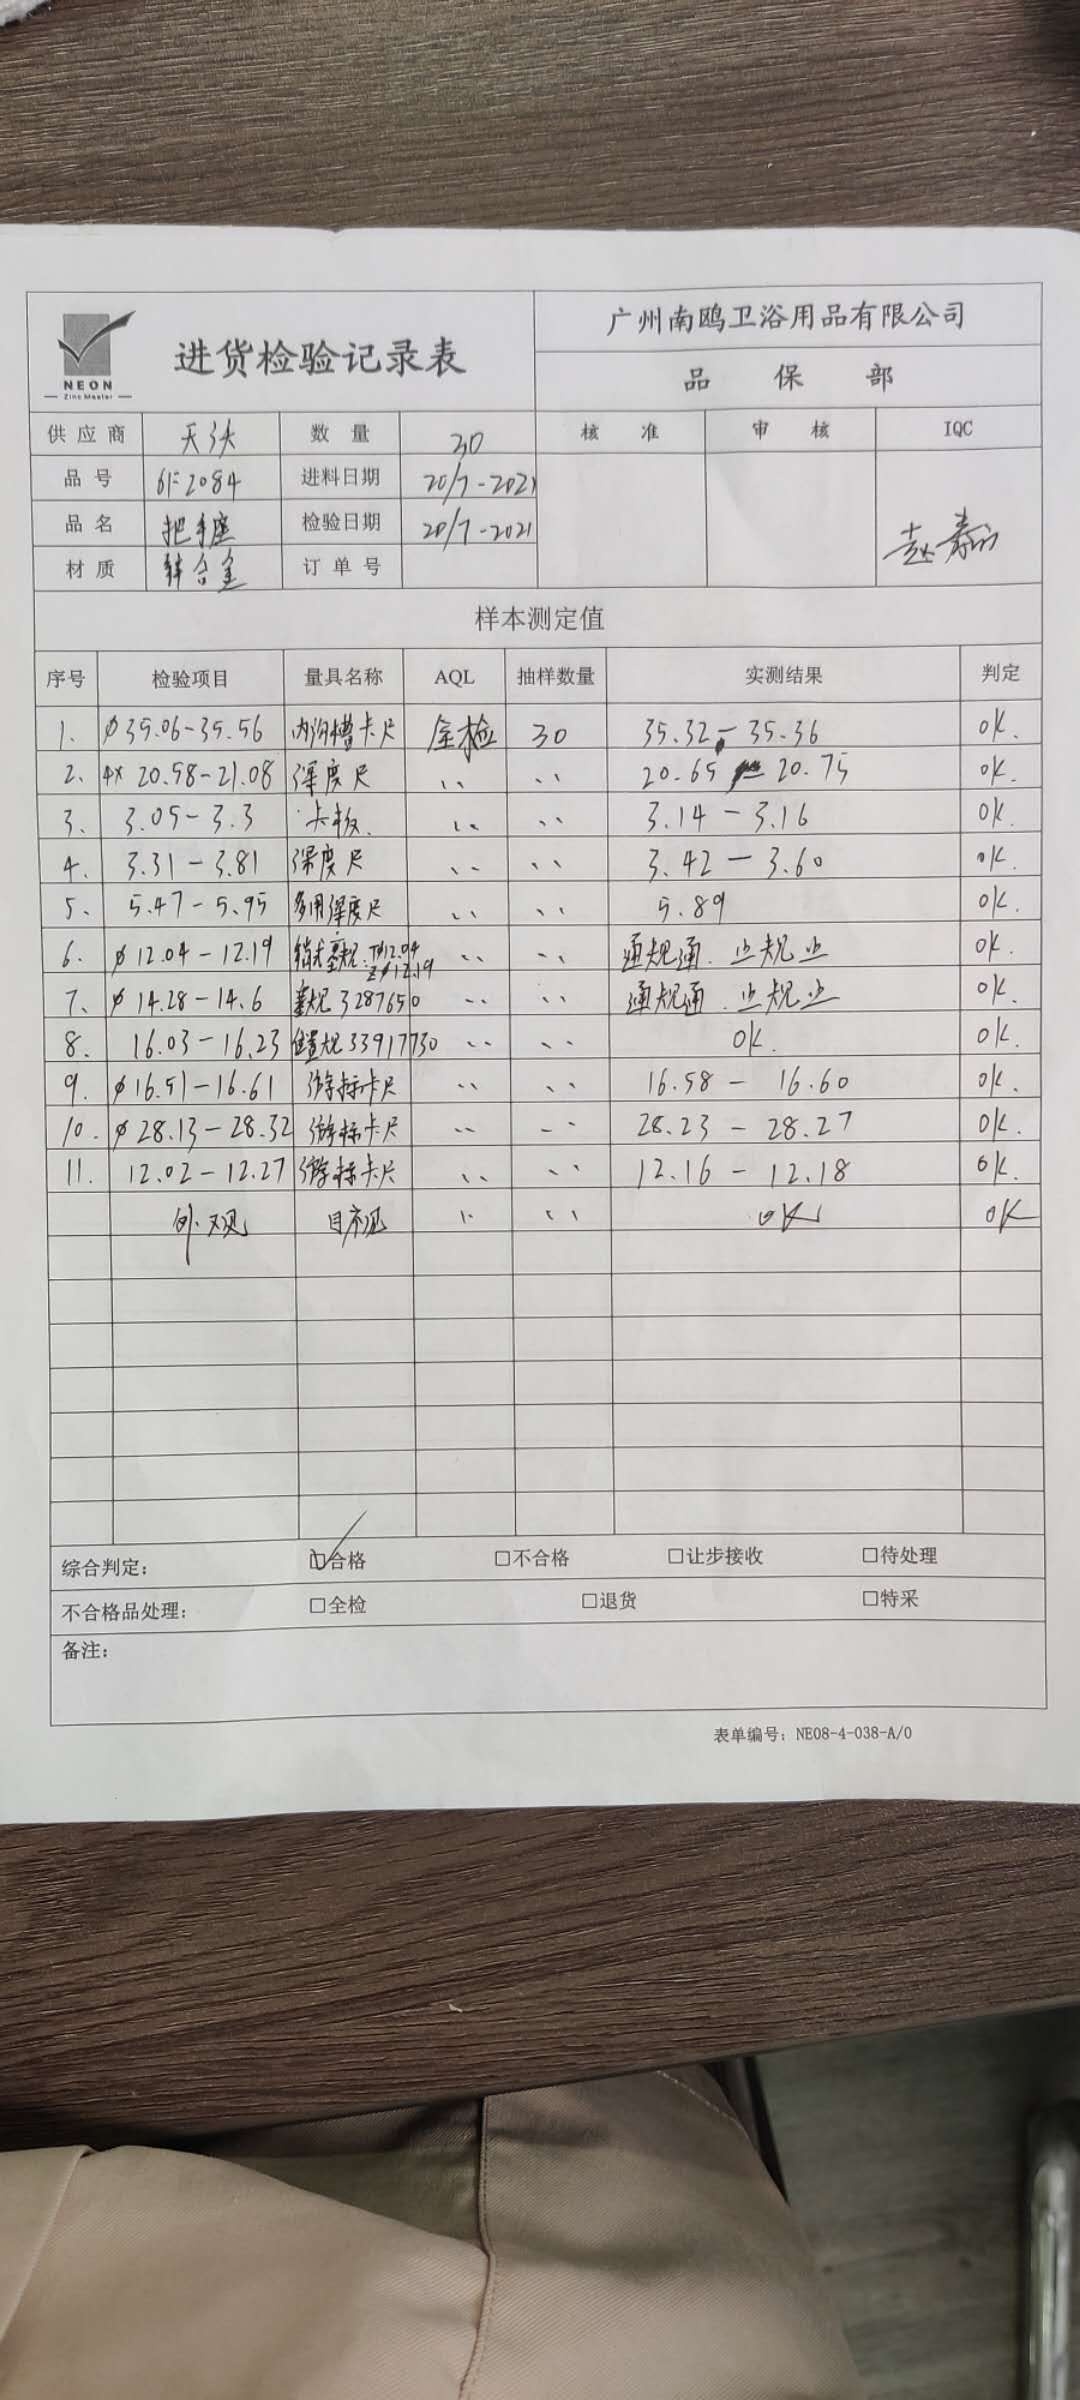 广州南鸥卫浴用品有限公司
进货检验记录表
NEON
Zinc Master
品 保 部
供应商 天头 数量 30 核准 审核 IQC
品号 2084 进料日期 20/7-2021
品名 把手座 检验日期 20/7-2021
材质 锌合金 订单号
样本测定值
序号 检验项目 量具名称 AQL 抽样数量 实测结果 判定
1. φ35.06-35.56 内沟槽卡尺 全检 30 35.32-35.36 OK.
2. 4x 20.58-21.08 深度尺 〃 〃 20.65-20.75 OK.
3. 3.05-3.3 卡板. 〃 〃 3.14-3.16 OK.
4. 3.31-3.81 深度尺 〃 〃 3.42-3.60 OK.
5. 5.47-5.95 多用深度尺 〃 〃 5.89 OK.
6. φ12.04-12.19 塞规: Tφ12.04 Zφ12.19 〃 〃 通规通.止规止 OK.
7. φ14.28-14.6 塞规3287650 〃 〃 通规通.止规止 OK.
8. 16.03-16.23 33917730 〃 〃 OK. OK.
9. φ16.51-16.61 游标卡尺 〃 〃 16.58-16.60 OK.
10. φ28.13-28.32 游标卡尺 〃 〃 28.23-28.27 OK.
11. 12.02-12.27 游标卡尺 〃 〃 12.16-12.18 OK.
外观 目视 〃 〃 OK OK
综合判定: ☑合格 □不合格 □让步接收 □待处理
不合格品处理: □全检 □退货 □特采
备注:
表单编号: NE08-4-038-A/0